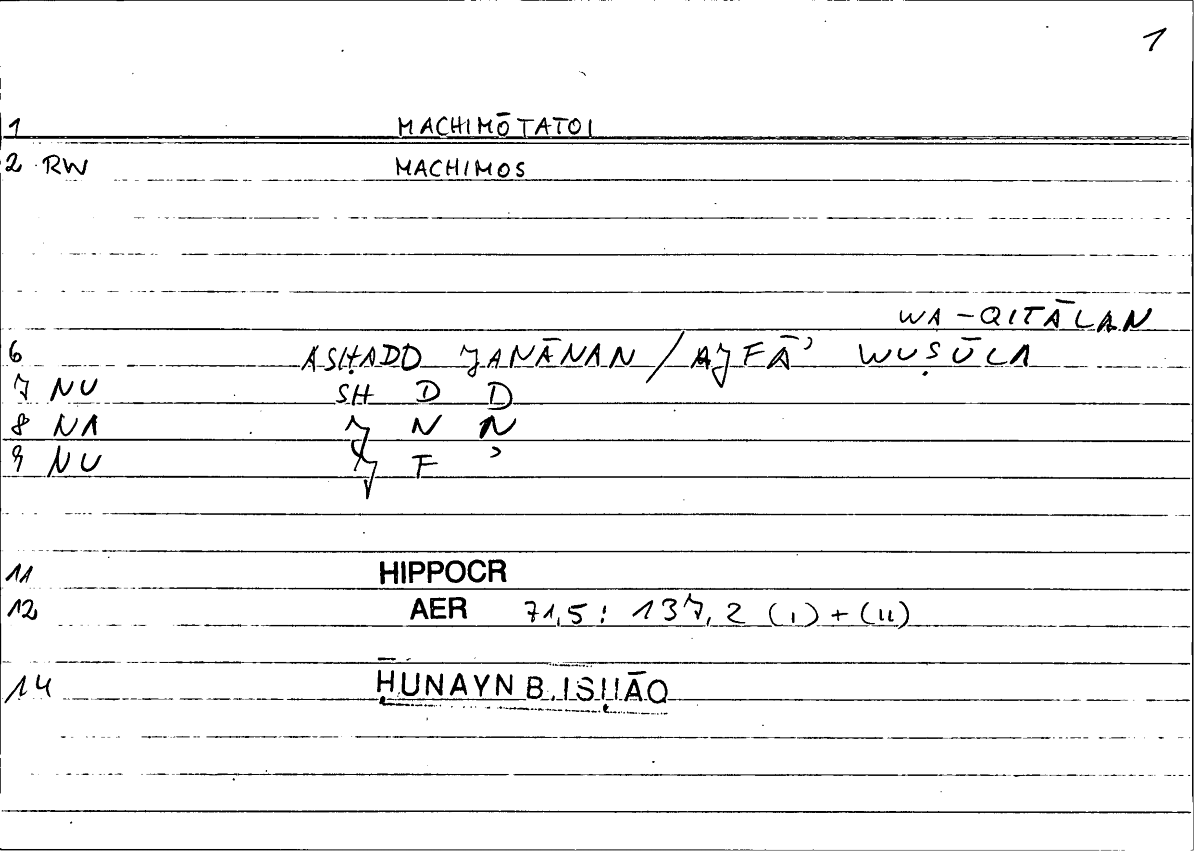 1
1 MACHIMŌTATOI
2 RW MACHIMOS
WA-QITĀLAN
6 ASHADD JANĀNAN / AJFĀʾ WUṢŪLA
7 NU SH D D
8 NA J N N
9 NU J F ʾ
11 HIPPOCR
12 AER 71,5: 137,2 (I) + (II)
14 ḤUNAYN B. ISḤĀQ